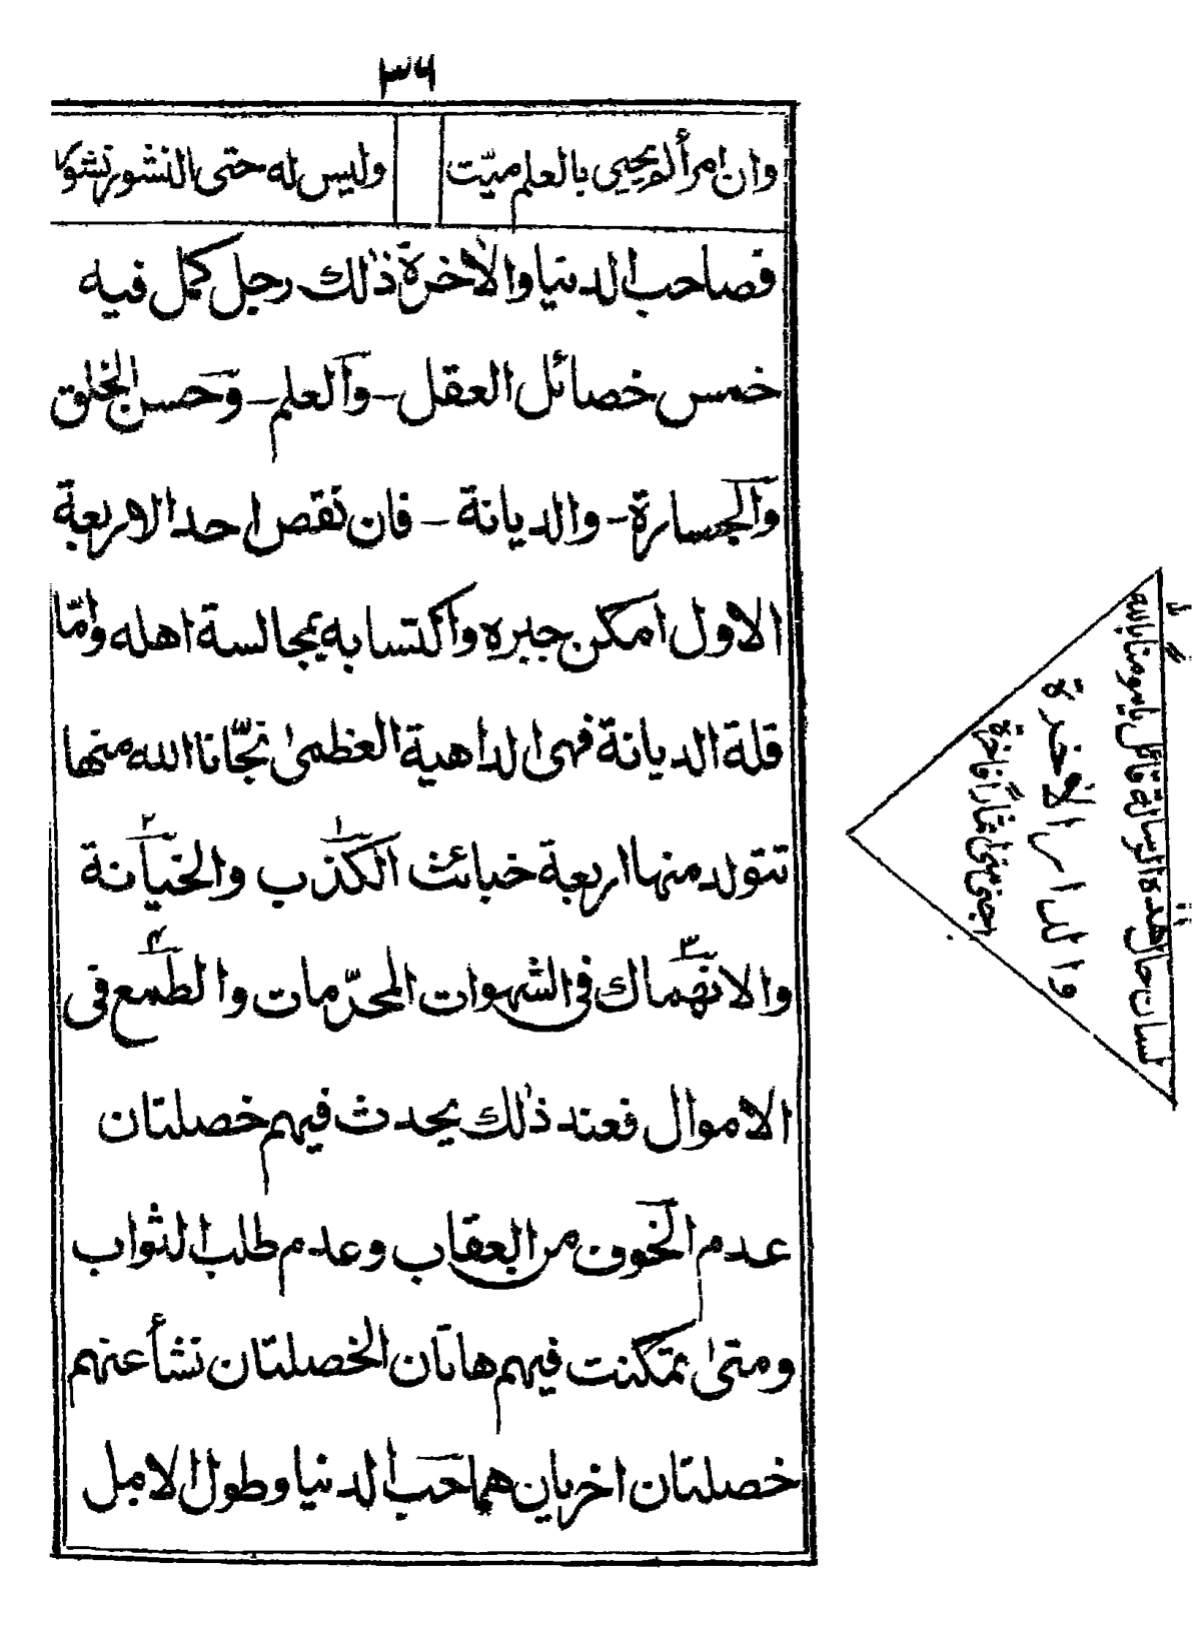 ٣٦
وان امرألم يحيى بالعلم ميّت
وليس له حتى النشور نشور
فصاحب الدنيا والاٰخرة ذٰلك رجل كمل فيه
خمس خصائل العقل - والعلم - وحسن الخلق
والجسارة - والديانة - فان نقص احد الاربعة
الاول امكن جبره واكتسابه بمجالسة اهله وامّا
قلة الديانة فهى الداهية العظمىٰ نجّانا الله منها
تتولد منها اربعة خبائث ١ الكذب ٢ والخيانة
٣ والانهماك فى الشهوات المحرّمات ٤ والطمع فى
الاموال فعند ذٰلك يحدث فيهم خصلتان
عدم الخوف من العقاب وعدم طلب الثواب
ومتىٰ تمكنت فيهم هاتان الخصلتان نشأ عنهم
خصلتان اخريان هما حب الدنيا وطول الامل
لسان حال هذه الرسالة قائل يا مومنا بالله
والدار الأخرة